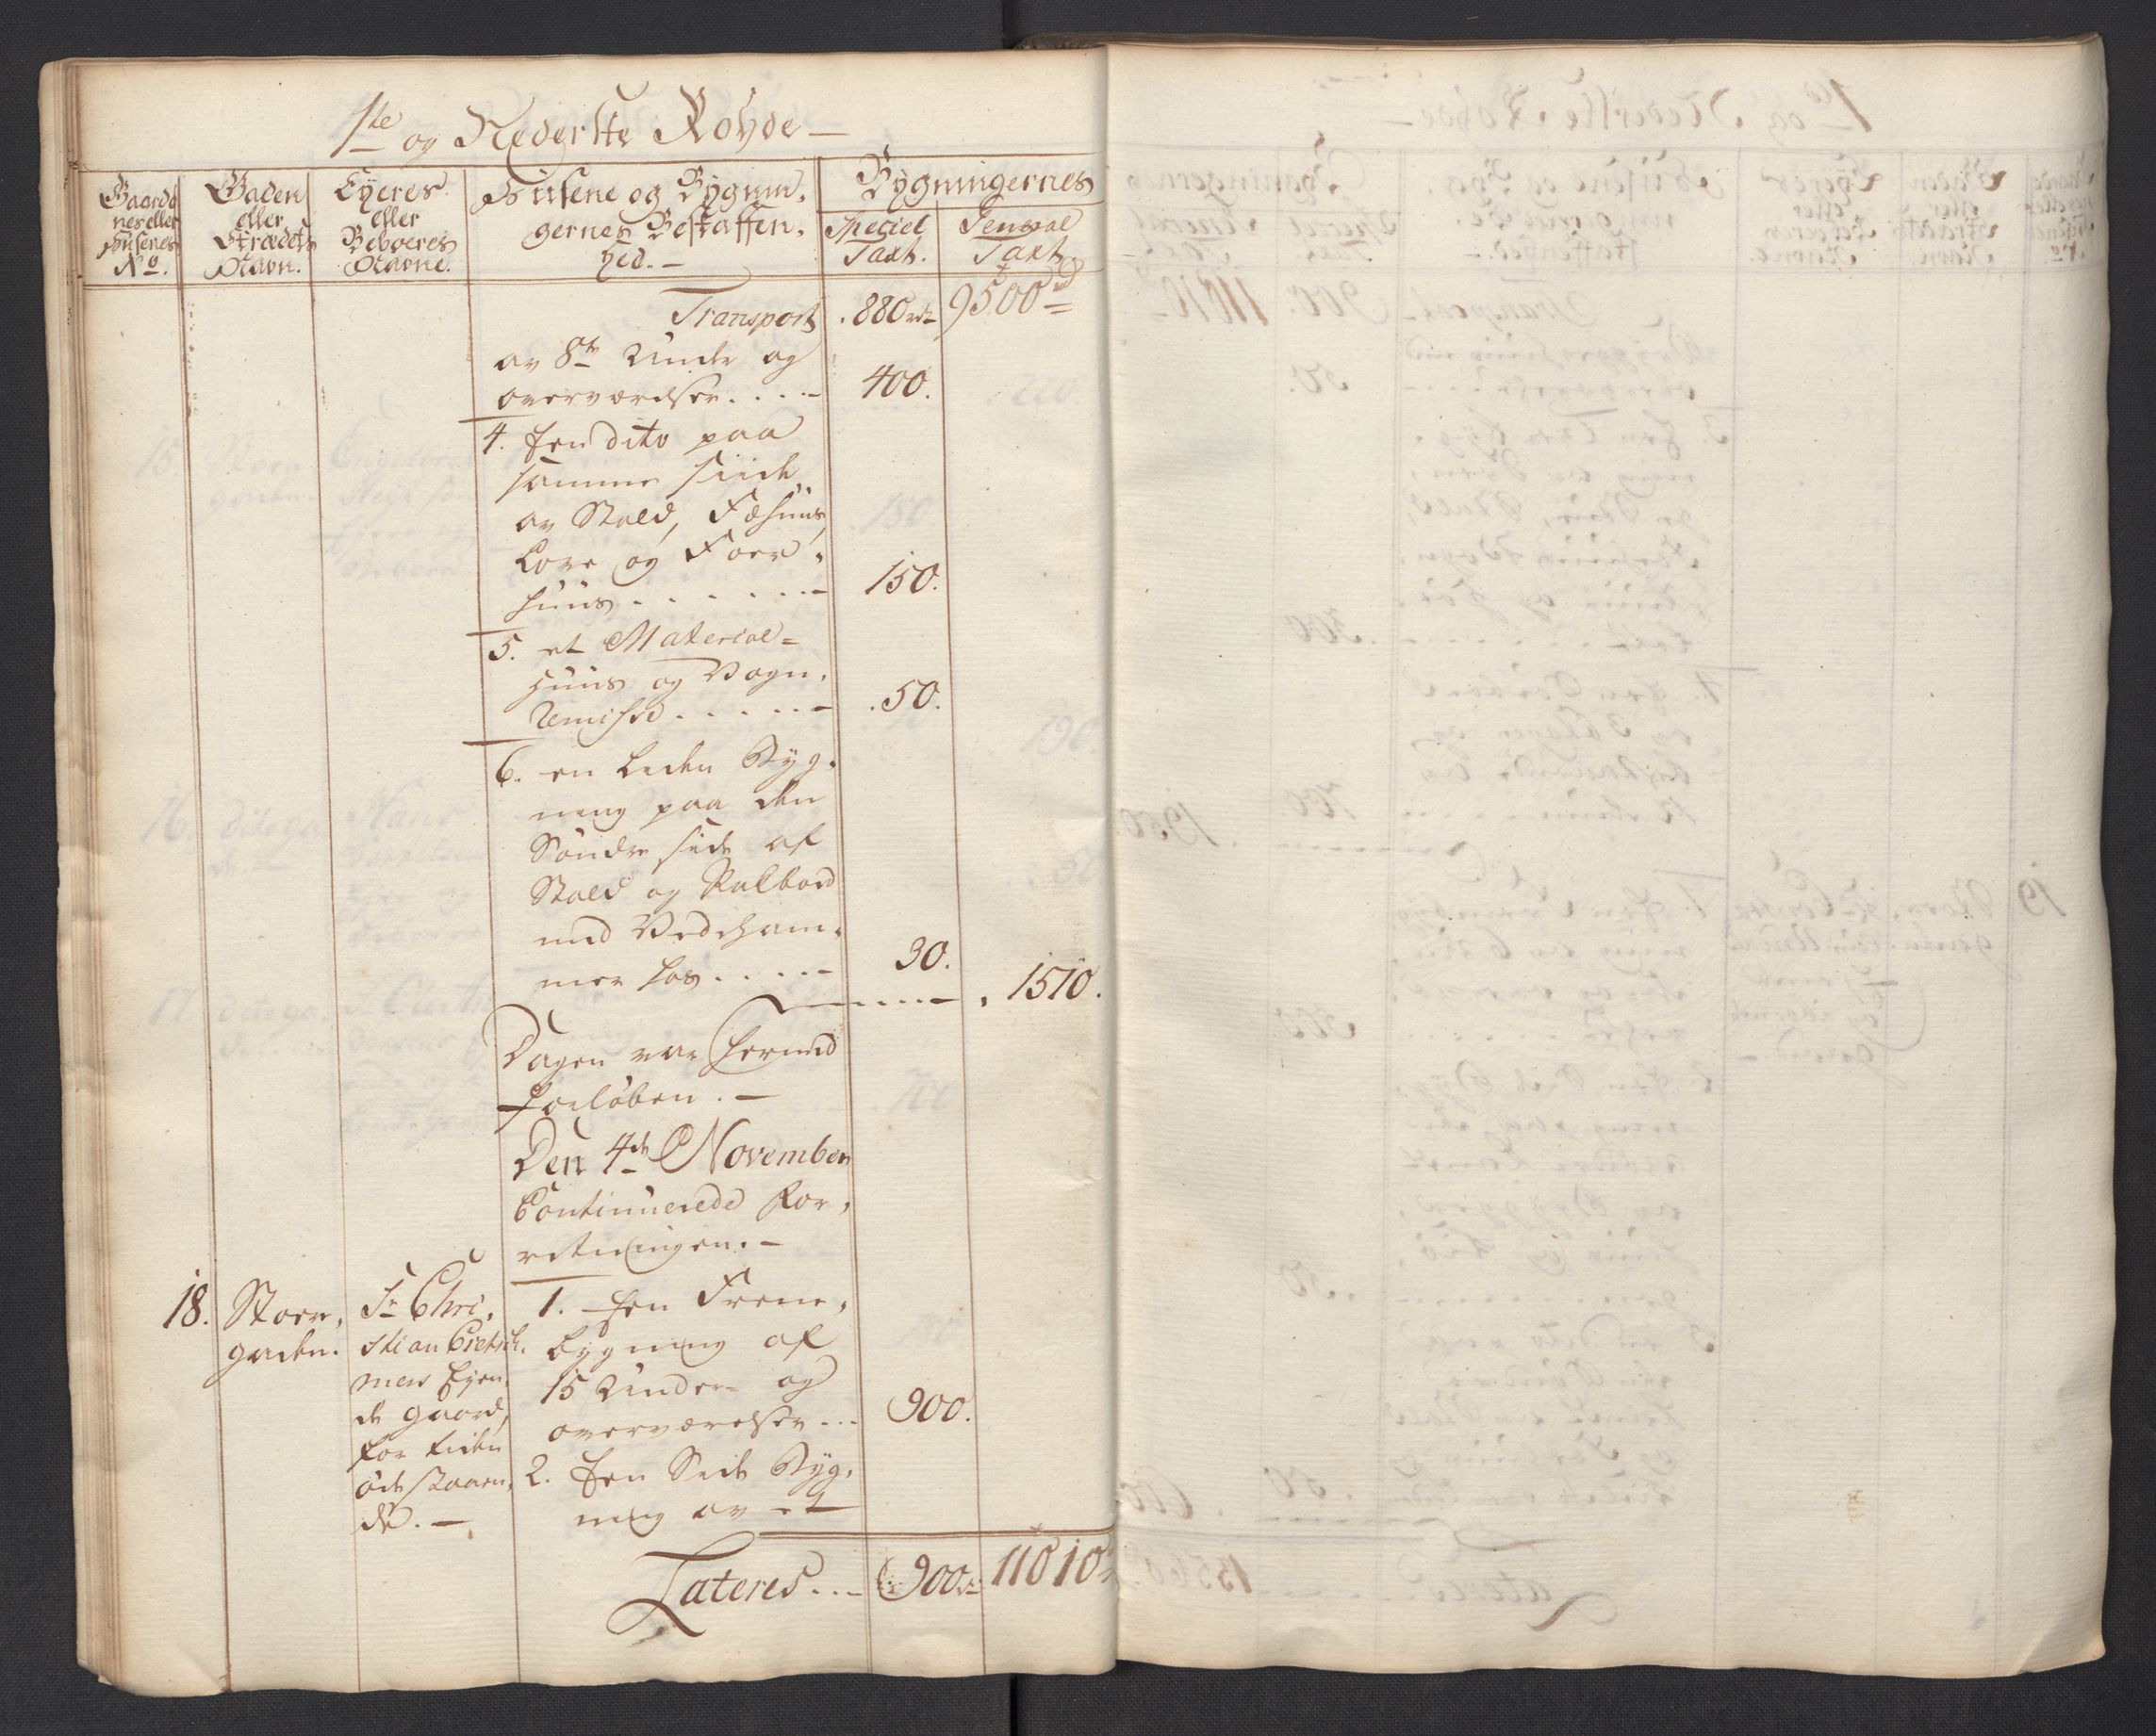 1ste og Nederste Rohde —
Gaarde
nes eller
Husenes
No.
Gaden
eller
Strædets
Navn.
Eyeres
eller
Beboeres
Navne.
Husene og Bygnin,
gernes Beskaffen,
hed. —
Bygningernes
Speciel
Taxt.
General
Taxt.
Transport . 880 rd 9500 rd
av 8te Under og
overværelser. . . . — 400.
4. Een dito paa
samme siide
av Stald, Fæhuus,
Love og Foer,
huus . . . . . . — 150.
5. et Material=
Huus og Vogn,
Remisse . . . . . — . 50.
6. en liden Byg,
ning paa den
Søndre side af
Stald og
med Vedkam,
mer hos . . . . — 30.
. 1510.
Dagen var hermed
forløben. —
Den 4de November
Continuerede For,
retningen. —
18. Stoer,
gaden.
Sr Chri,
stian
mers Eyen,
de gaard,
for tiden
øde staaen,
de. —
1. Een Frem,
bygning af
15 Under og
overværelser . . . 900.
2. Een Side Byg,
ning av et
Lateres . . . 900 rd 11010